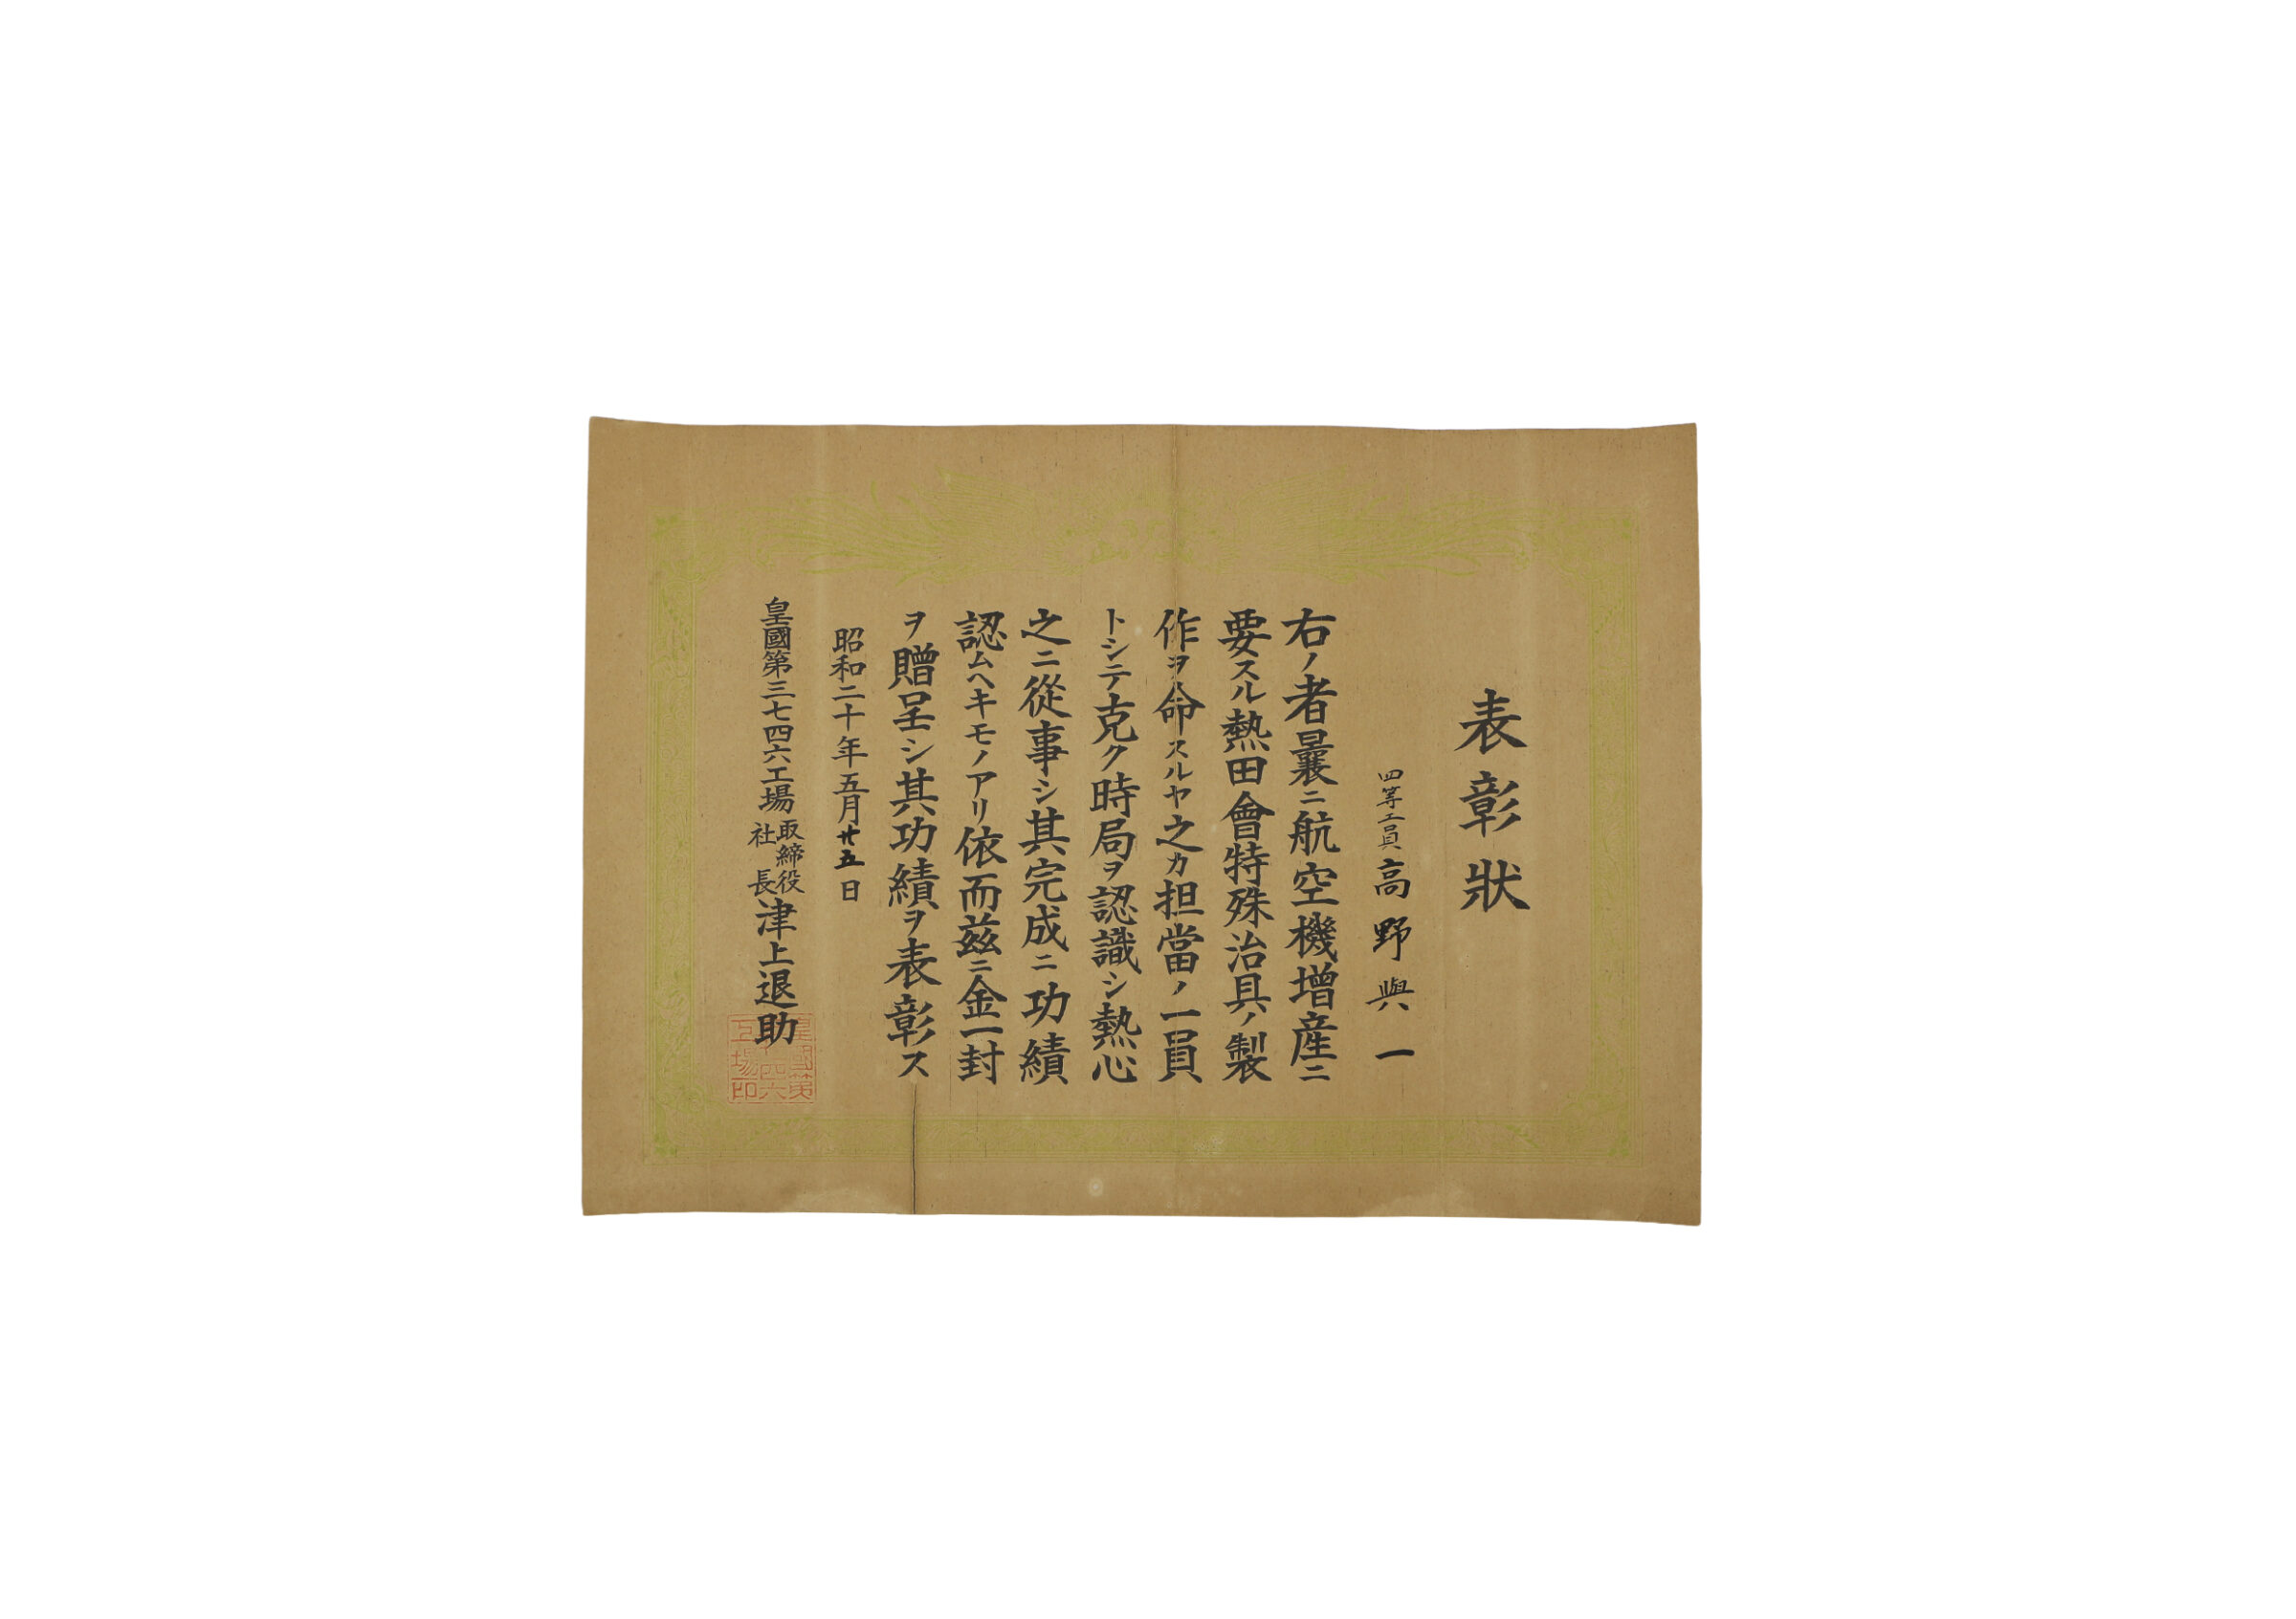 表彰狀
四等工員 高野與一
右ノ者曩ニ航空機增産ニ
要スル熱田會特殊治具ノ製
作ヲ命スルヤ之カ担當ノ一員
トシテ克ク時局ヲ認識シ熱心
之ニ從事シ其完成ニ功績
認ムヘキモノアリ依而茲ニ金一封
ヲ贈呈シ其功績ヲ表彰ス
昭和二十年五月廿五日
皇國第三七四六工場 取締役社長 津上退助
皇國第
四六
工場印